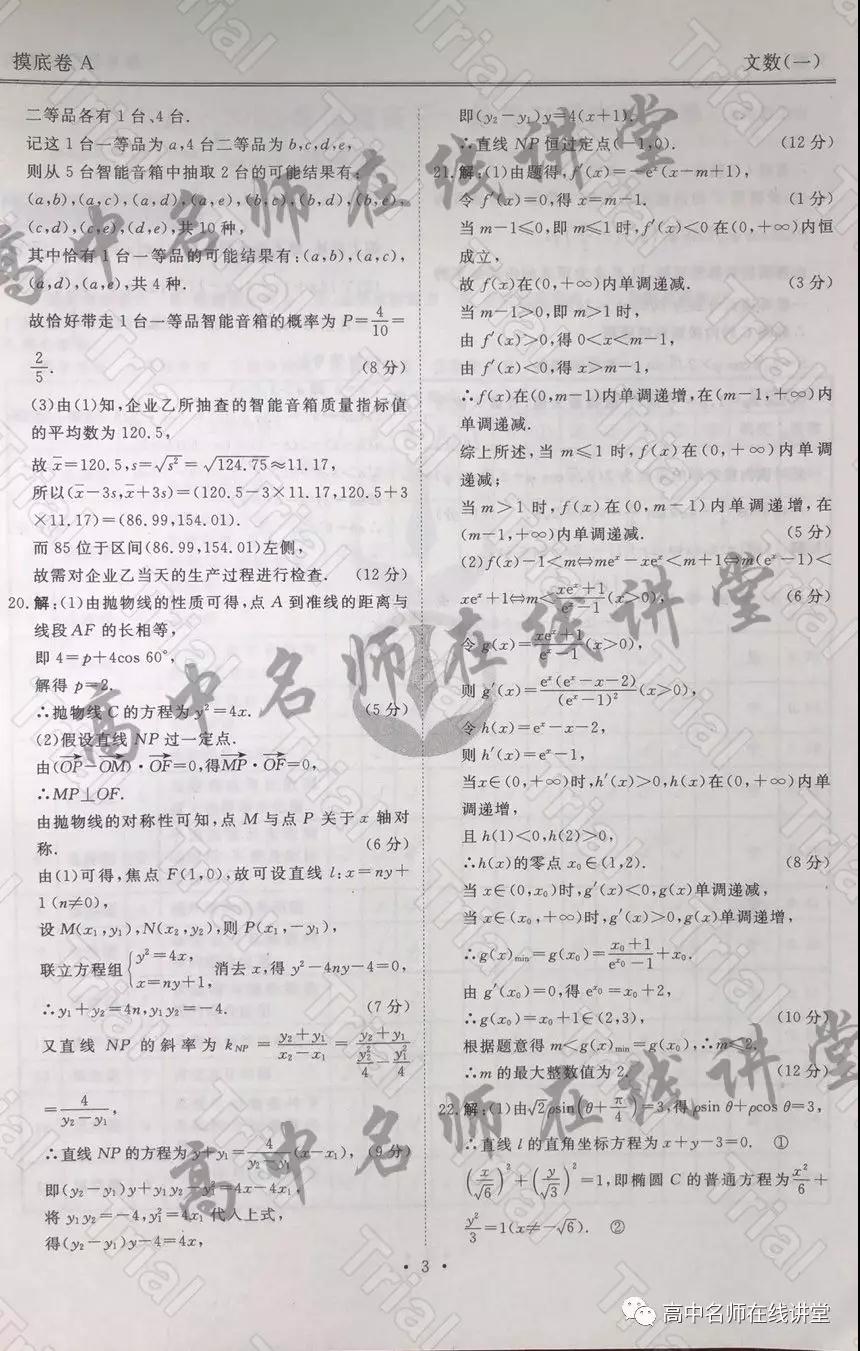 摸底卷 A
文数(一)
二等品各有1台、4台.
记这1台一等品为a,4台二等品为b,c,d,e,
则从5台智能音箱中抽取2台的可能结果有:
(a,b),(a,c),(a,d),(a,e),(b,c),(b,d),(b,e),
(c,d),(c,e),(d,e),共10种,
其中恰有1台一等品的可能结果有:(a,b),(a,c),
(a,d),(a,e),共4种.
故恰好带走1台一等品智能音箱的概率为P=4/10=
2/5. (8分)
(3)由(1)知,企业乙所抽查的智能音箱质量指标值
的平均数为120.5,
故x̄=120.5,s=√s²=√124.75≈11.17,
所以(x̄-3s,x̄+3s)=(120.5-3×11.17,120.5+3
×11.17)=(86.99,154.01).
而85位于区间(86.99,154.01)左侧,
故需对企业乙当天的生产过程进行检查. (12分)
20.解:(1)由抛物线的性质可得,点A到准线的距离与
线段AF的长相等,
即4=p+4cos 60°,
解得p=2.
∴抛物线C的方程为y²=4x. (5分)
(2)假设直线NP过一定点.
由(OP→-OM→)·OF→=0,得MP→·OF→=0,
∴MP⊥OF.
由抛物线的对称性可知,点M与点P关于x轴对
称. (6分)
由(1)可得,焦点F(1,0),故可设直线l:x=ny+
1(n≠0),
设M(x₁,y₁),N(x₂,y₂),则P(x₁,-y₁),
联立方程组{y²=4x, x=ny+1, 消去x,得y²-4ny-4=0,
∴y₁+y₂=4n,y₁y₂=-4. (7分)
又直线NP的斜率为k_NP=(y₂+y₁)/(x₂-x₁)=(y₂+y₁)/(y₂²/4-y₁²/4)
=4/(y₂-y₁),
∴直线NP的方程为y+y₁=4/(y₂-y₁)(x-x₁), (9分)
即(y₂-y₁)y+y₁y₂-y₁²=4x-4x₁,
将y₁y₂=-4,y₁²=4x₁代入上式,
得(y₂-y₁)y-4=4x,
即(y₂-y₁)y=4(x+1).
∴直线NP恒过定点(-1,0). (12分)
21.解:(1)由题得,f′(x)=-eˣ(x-m+1),
令f′(x)=0,得x=m-1. (1分)
当m-1≤0,即m≤1时,f′(x)<0在(0,+∞)内恒
成立,
故f(x)在(0,+∞)内单调递减. (3分)
当m-1>0,即m>1时,
由f′(x)>0,得0<x<m-1,
由f′(x)<0,得x>m-1,
∴f(x)在(0,m-1)内单调递增,在(m-1,+∞)内
单调递减.
综上所述,当m≤1时,f(x)在(0,+∞)内单调
递减;
当m>1时,f(x)在(0,m-1)内单调递增,在
(m-1,+∞)内单调递减. (5分)
(2)f(x)-1<m⇔meˣ-xeˣ<m+1⇔m(eˣ-1)<
xeˣ+1⇔m<(xeˣ+1)/(eˣ-1)(x>0), (6分)
令g(x)=(xeˣ+1)/(eˣ-1)(x>0),
则g′(x)=eˣ(eˣ-x-2)/(eˣ-1)²(x>0),
令h(x)=eˣ-x-2,
则h′(x)=eˣ-1,
当x∈(0,+∞)时,h′(x)>0,h(x)在(0,+∞)内单
调递增,
且h(1)<0,h(2)>0,
∴h(x)的零点x₀∈(1,2). (8分)
当x∈(0,x₀)时,g′(x)<0,g(x)单调递减,
当x∈(x₀,+∞)时,g′(x)>0,g(x)单调递增,
∴g(x)min=g(x₀)=(x₀+1)/(e^x₀-1)+x₀.
由g′(x₀)=0,得e^x₀=x₀+2,
∴g(x₀)=x₀+1∈(2,3), (10分)
根据题意得m<g(x)min=g(x₀),∴m≤2.
∴m的最大整数值为2. (12分)
22.解:(1)由√2ρsin(θ+π/4)=3,得ρsin θ+ρcos θ=3,
∴直线l的直角坐标方程为x+y-3=0. ①
(x/√6)²+(y/√3)²=1,即椭圆C的普通方程为x²/6+
y²/3=1(x≠-√6). ②
· 3 ·
高中名师在线讲堂
高中名师在线讲堂
高中名师在线讲堂
高中名师在线讲堂
Trial